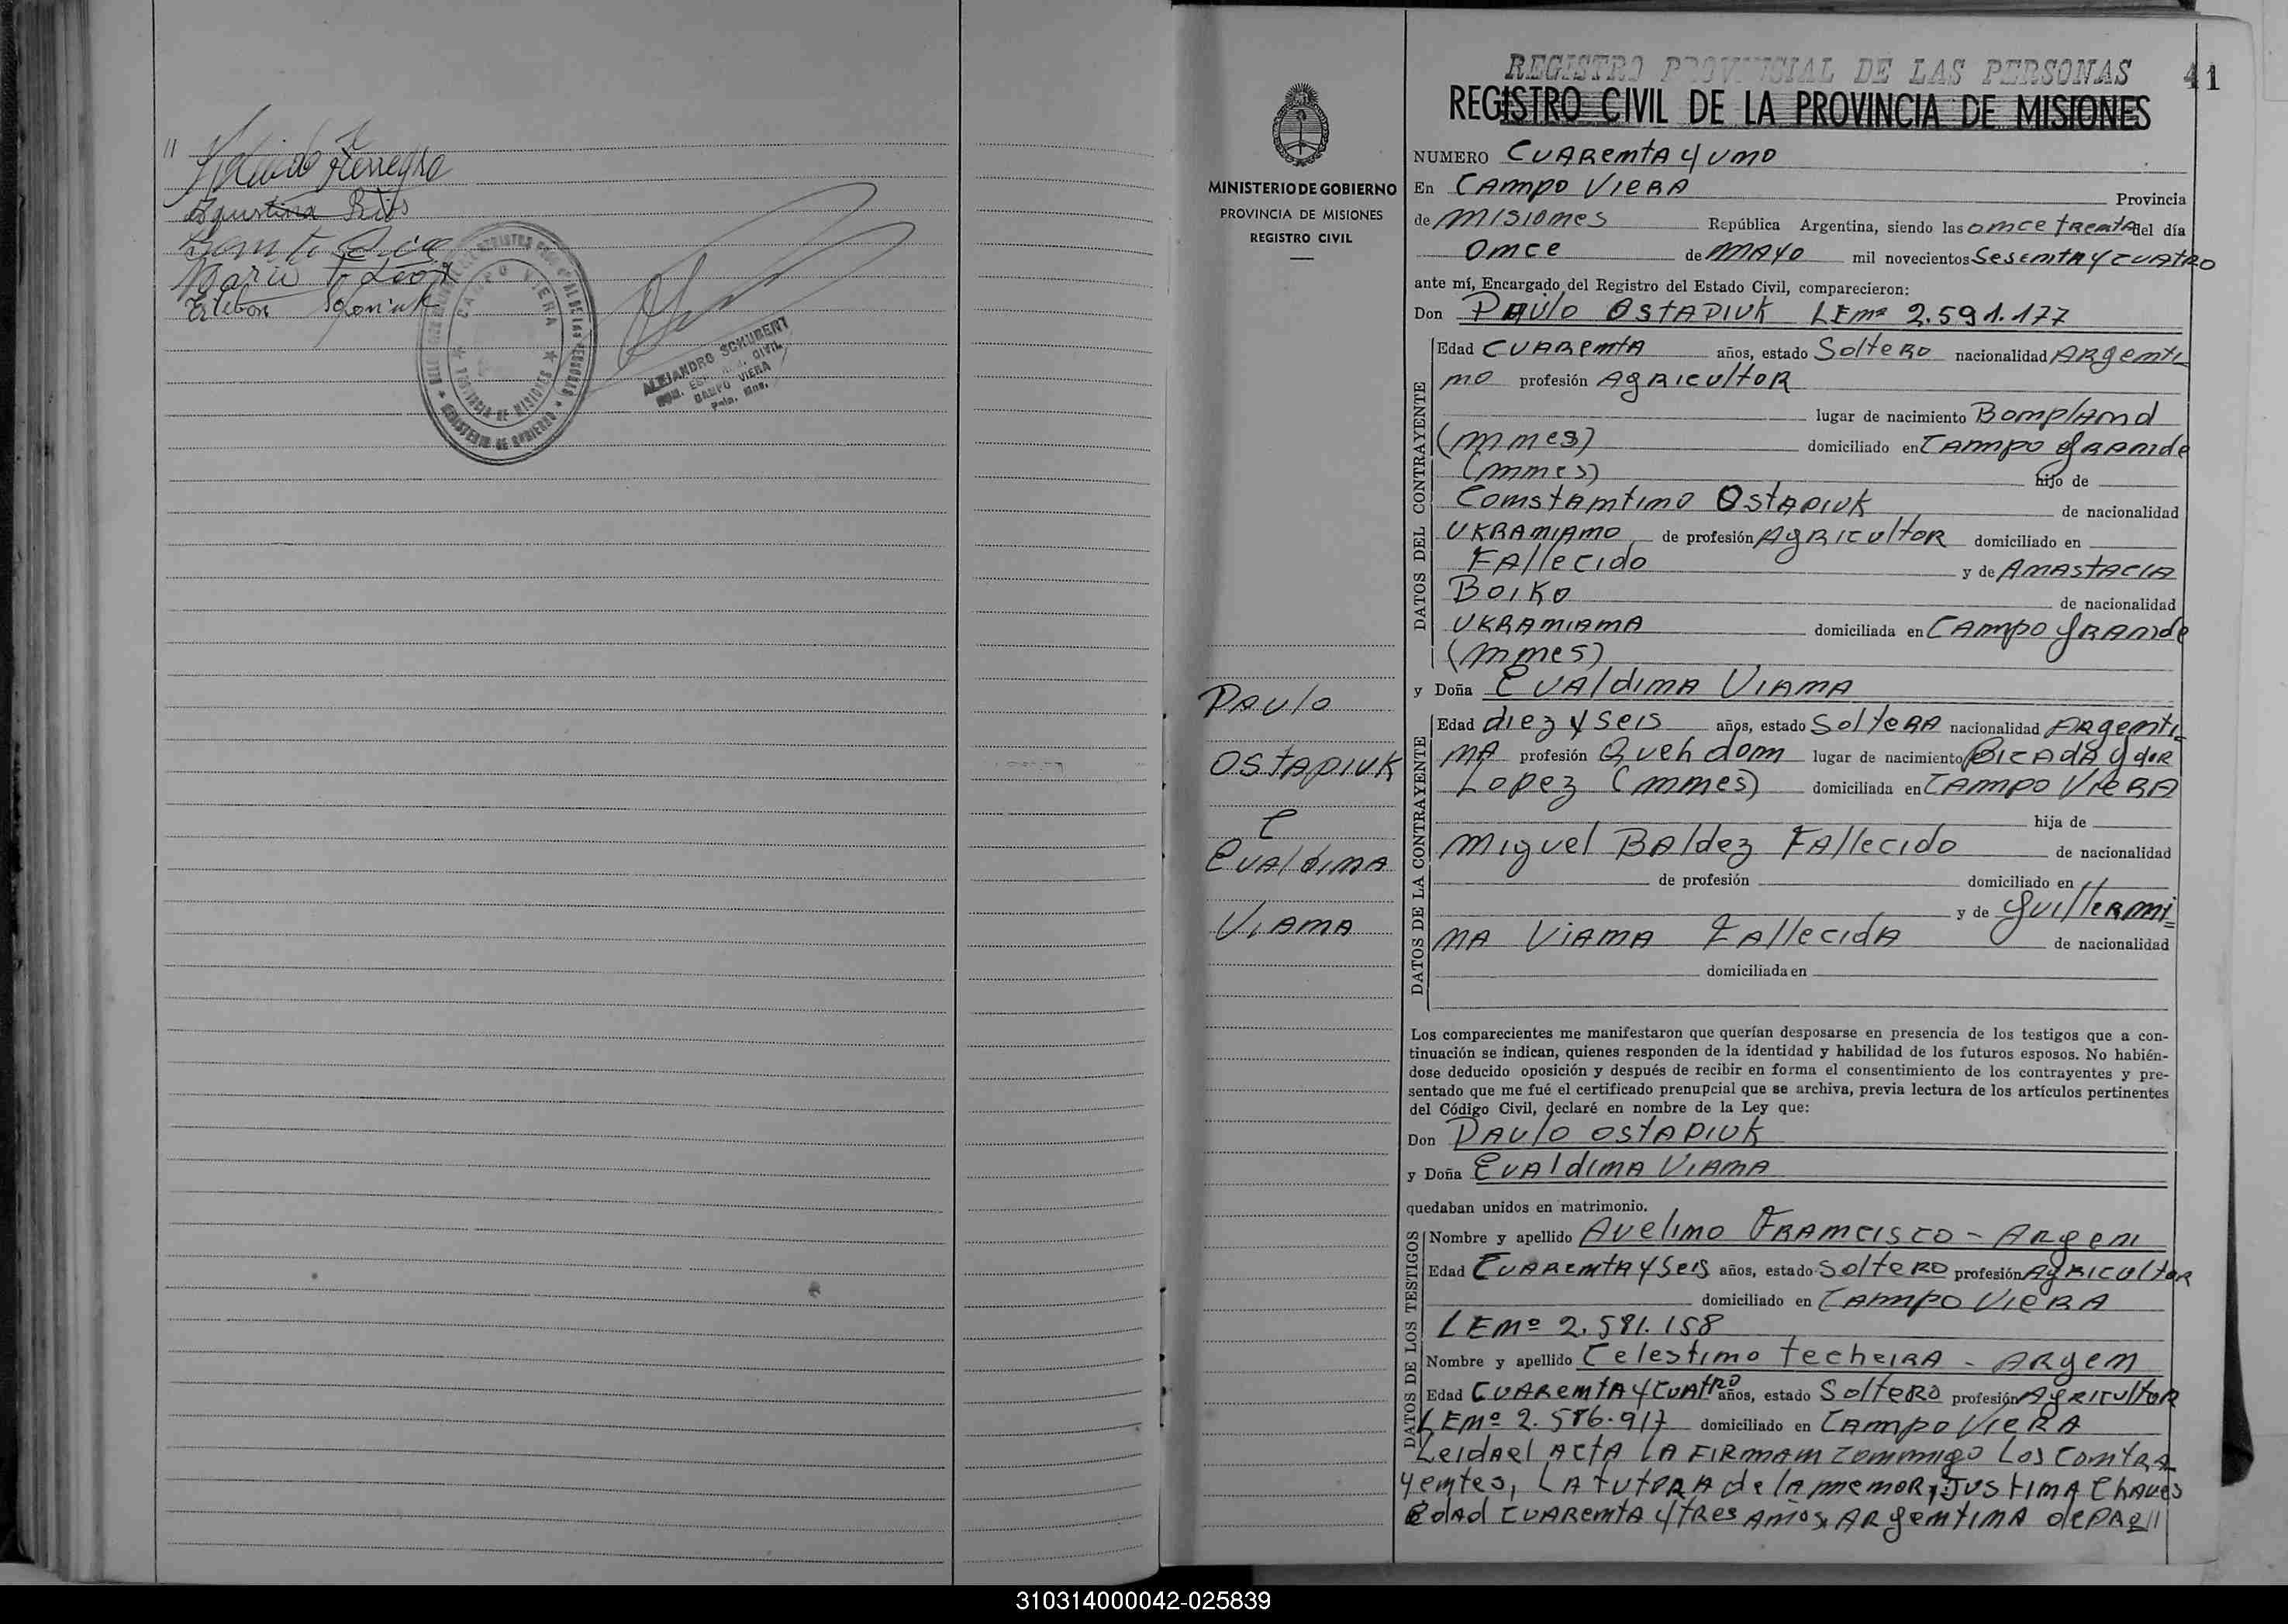 Agustina Ríos
REGISTRO PROVINCIAL DE LAS PERSONAS
CAMPO VIERA
PROVINCIA DE MISIONES
MINISTERIO DE GOBIERNO
ALEJANDRO SCHUBERT
CAMPO VIERA
Pcia. Mns.
MINISTERIO DE GOBIERNO
PROVINCIA DE MISIONES
REGISTRO CIVIL
PAulo
OSTAPIUK
E
EVALdiNA
VIANA
REGISTRO PROVINCIAL DE LAS PERSONAS
41
REGISTRO CIVIL DE LA PROVINCIA DE MISIONES
NUMERO CUARENTA y UNO
En CAMPO VIERA Provincia
de MISIONES República Argentina, siendo las ONCE TREINTA del día
ONCE de MAYO mil novecientos SESENTA Y CUATRO
ante mí, Encargado del Registro del Estado Civil, comparecieron:
Don PAulo OSTAPIUK LENº 2.591.177
DATOS DEL CONTRAYENTE
Edad CUARENTA años, estado SolteRO nacionalidad ARgenti-
NO profesión AgRICultoR
lugar de nacimiento BonplAnd
(mnes) domiciliado en CAmpo gRANde
(mnes) hijo de
ConstAntino OSTAPIUK de nacionalidad
UKRANIANO de profesión AgRICultoR domiciliado en
FAllecido y de ANASTACIA
BoiKo de nacionalidad
UKRANIANA domiciliada en CAmpo gRANde
(mnes)
y Doña EVALdiNA VIANA
DATOS DE LA CONTRAYENTE
Edad diez y seis años, estado SolteRA nacionalidad ARgenti-
NA profesión Queh dom lugar de nacimiento PICAdA y doR
Lopez (mnes) domiciliada en CAmpo VieRA
hija de
Miguel BAldez FAllecido de nacionalidad
de profesión domiciliado en //
y de guilleRmi=
NA VIANA FAllecidA de nacionalidad
domiciliada en
Los comparecientes me manifestaron que querían desposarse en presencia de los testigos que a con-
tinuación se indican, quienes responden de la identidad y habilidad de los futuros esposos. No habién-
dose deducido oposición y después de recibir en forma el consentimiento de los contrayentes y pre-
sentado que me fué el certificado prenupcial que se archiva, previa lectura de los artículos pertinentes
del Código Civil, declaré en nombre de la Ley que:
Don PAulo OSTAPIUK
y Doña EVALdiNA VIANA
quedaban unidos en matrimonio.
DATOS DE LOS TESTIGOS
Nombre y apellido Avelino FRANcisco - ARgen
Edad CUARENTA y Seis años, estado SolteRO profesión AgRICultoR
domiciliado en CAmpo VieRA
LENº 2.581.158
Nombre y apellido Celestino TecheiRA - ARgen
Edad CUARENTA y CUATRO años, estado SolteRO profesión AgRICultoR
LENº 2.586.917 domiciliado en CAmpo VieRA
LeidA el ActA lA FIRmAN conmigo los contRA
yentes, lA tutoRA de lA menoR, JustinA ChAves
EdAd CUARENTA y tres Años, ARgentinA de PAR//
310314000042-025839